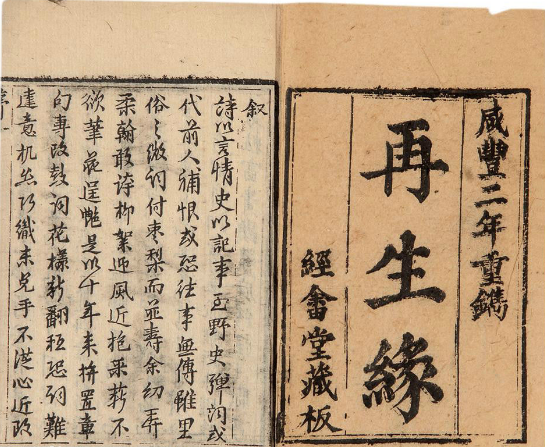 咸豐二年重鐫
再生緣
經畬堂藏板
叙
詩以言情史以記事至野史彈詞或
代前人補恨或恐往事無傳雖里
俗之微詞付棗梨而並壽余幼弄
柔翰敢誇柳絮迎風近抱采薪不
欲華葩逞艷是以十年來拚置章
句專改鼓詞花樣新翻秪恐詞難
達意机絲巧織未免手不從心近改